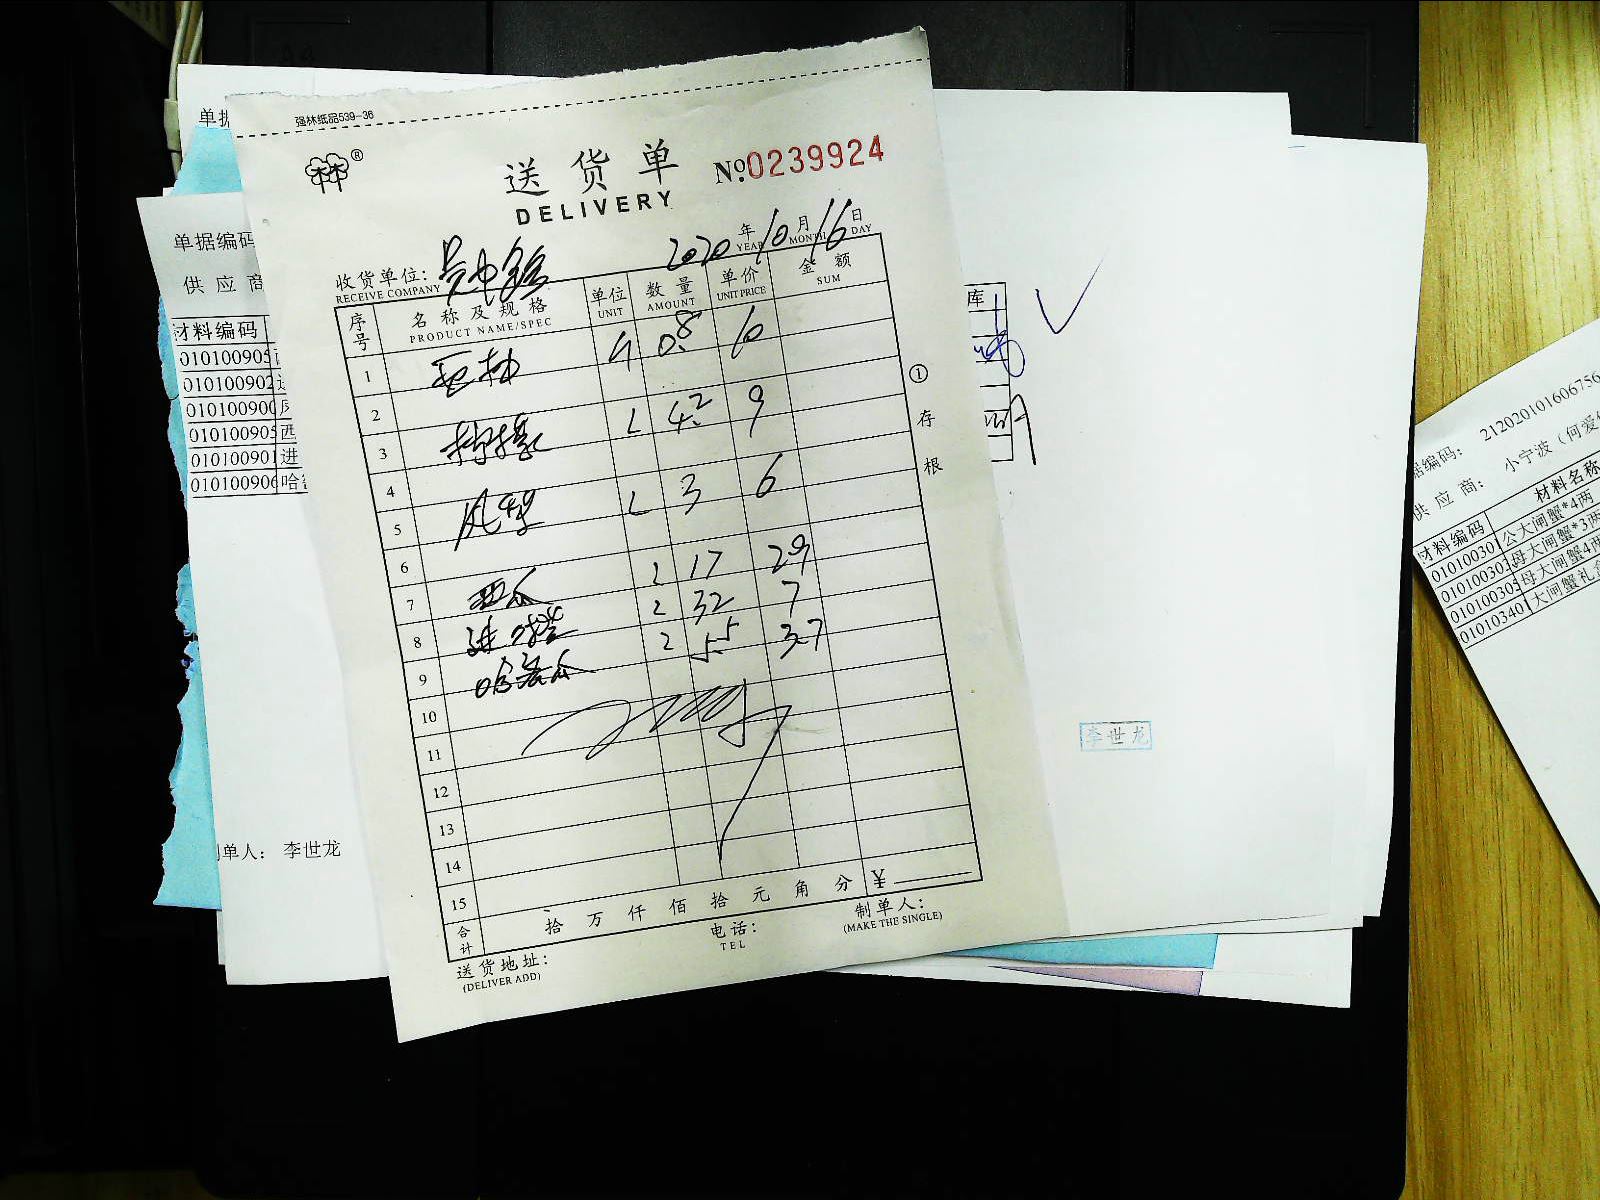 强林纸品539-36
林林®
送货单
DELIVERY
№0239924
2020年10月16日
YEAR MONTH DAY
收货单位:
RECEIVE COMPANY
序号
名称及规格
PRODUCT NAME/SPEC
单位
UNIT
数量
AMOUNT
单价
UNIT PRICE
金额
SUM
1
0.8 10
2
3
4.2 9
4
5
凤梨 3 6
6
7
西瓜 17 29
8
32 7
9
哈密瓜 5.5 3.7
10
11
12
13
14
15
合计
拾万仟佰拾元角分 ¥
送货地址:
(DELIVER ADD)
电话:
TEL
制单人:
(MAKE THE SINGLE)
①存根
单据
单据编码
供应商
材料编码
010100905
010100902
010100900
010100905 西
010100901 进
010100906 哈
制单人: 李世龙
库
李世龙
据编码: 212020101606756
供应商: 小宁波(何爱
材料编码 材料名称
01010030 公大闸蟹*4两
01010030 母大闸蟹*3两
01010030 母大闸蟹4两
01010340 大闸蟹礼盒